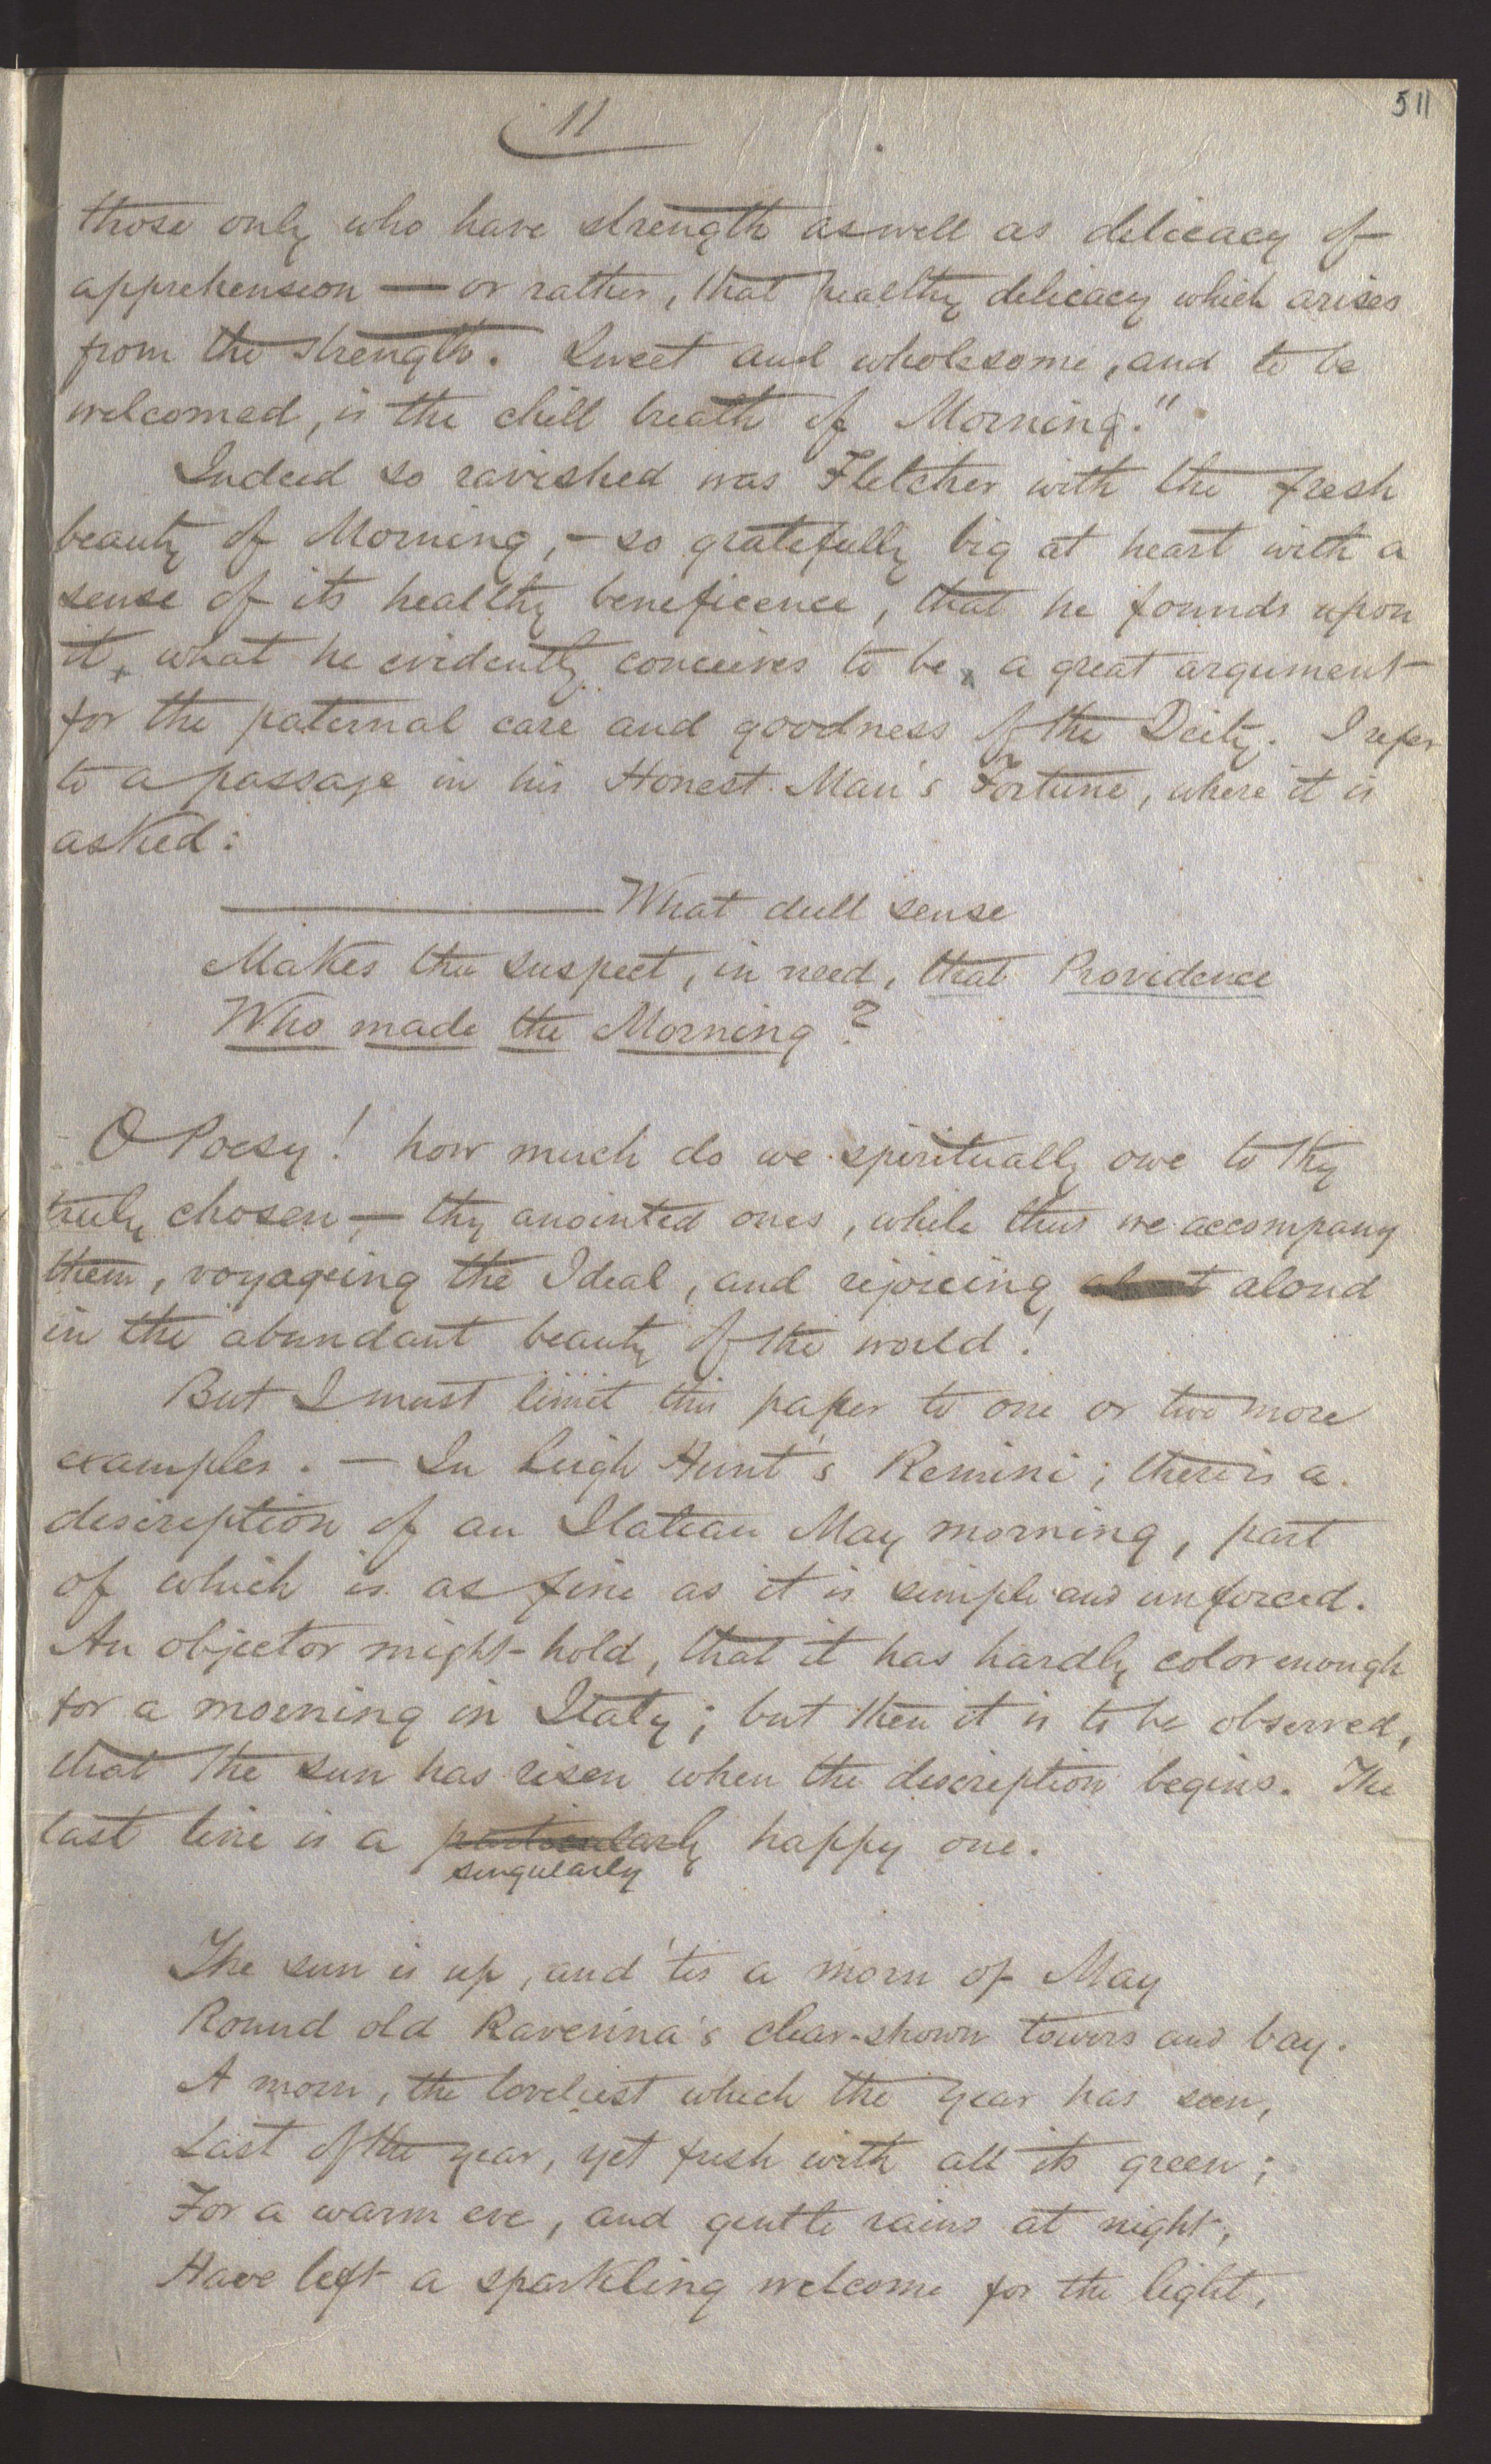 11
511
those only who have strength as well as delicacy of
apprehension — or rather, that healthy delicacy which arises
from the strength. Sweet and wholesome, and to be
welcomed, is the chill breath of Morning."
Indeed so ravished was Fletcher with the fresh
beauty of Morning, – so gratefully big at heart with a
sense of its healthy beneficence, that he founds upon
it, what he evidently conceives to be, a great argument
for the paternal care and goodness of the Deity. I refer
to a passage in his Honest Man's Fortune, where it is
asked:
———— What dull sense
Makes thee suspect, in need, that Providence
Who made the Morning?
O Poesy! how much do we spiritually owe to thy
truly chosen — thy anointed ones, while thus we accompany
them, voyageing the Ideal, and rejoicing, aloud
in the abundant beauty of the world!
But I must limit this paper to one or two more
examples. — In Leigh Hunt's Remini; there is a
description of an Italian May morning, part
of which is as fine as it is simple and unforced.
An objector might hold, that it has hardly color enough
for a morning in Italy; but then it is to be observed,
that the sun has risen when the description begins. The
last line is a particularly happy one.
singularly
The sun is up, and 'tis a morn of May
Round old Ravenna's clear-shown towers and bay.
A morn, the loveliest which the year has seen,
Last of the year, yet fresh with all its green;
For a warm eve, and gentle rains at night,
Have left a sparkling welcome for the light,